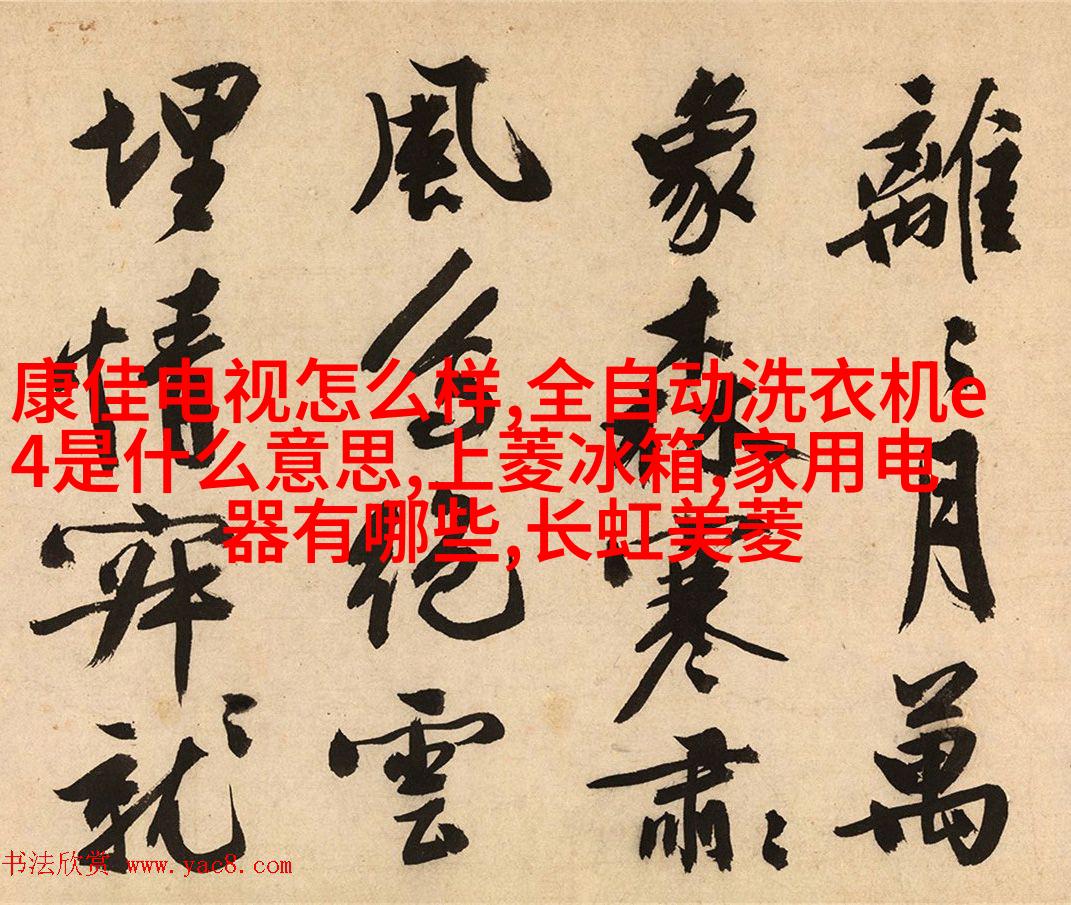 康佳电视怎么样,全自动洗衣机e
4是什么意思,上菱冰箱,家用电
器有哪些,长虹美菱
離〻月萬
象森寒肅〻
風絕雲
埋情就〻
书法欣赏 www.yac8.com